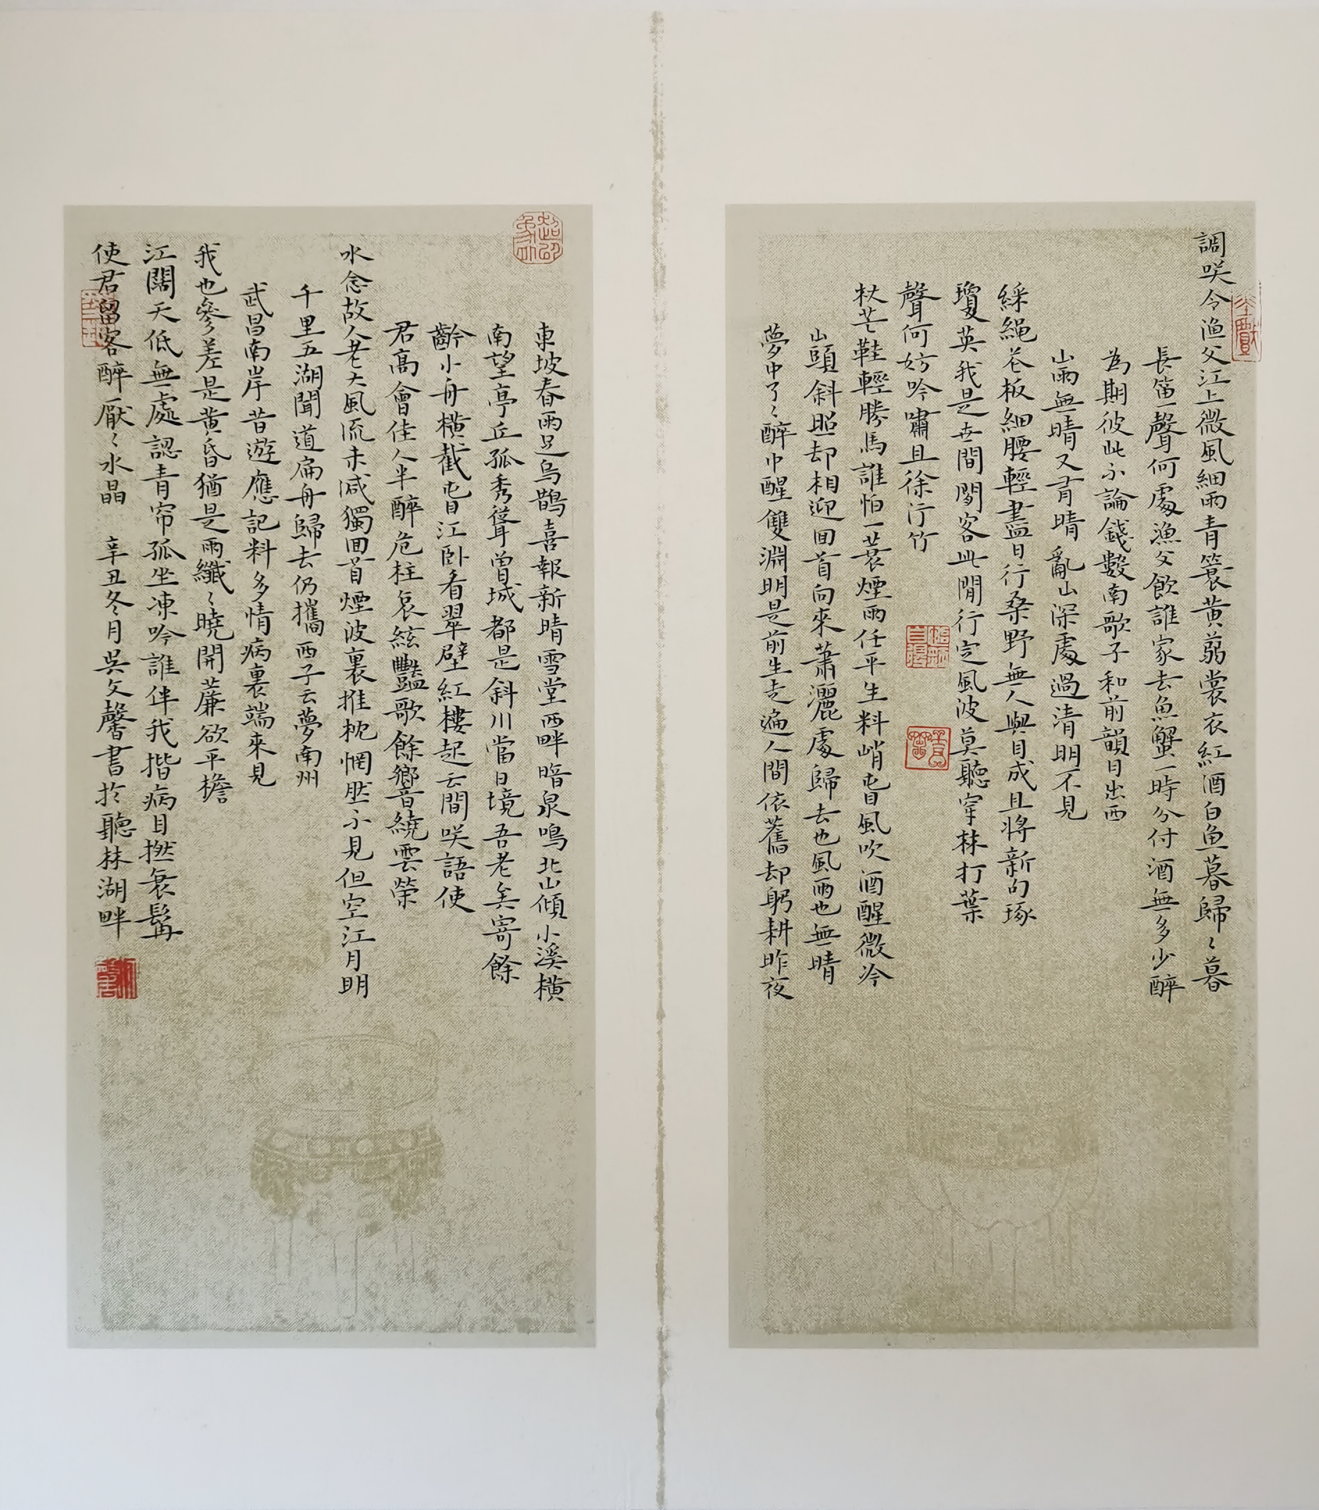 調咲令漁父江上微風細雨青簑黃蒻裳衣紅酒白魚暮歸〻暮
長笛一聲何處漁父飲誰家去魚蟹一時分付酒無多少醉
為期彼此不論錢數南歌子和前韻日出西
山雨無晴又有晴亂山深處過清明不見
綵繩花板細腰輕盡日行桑野無人與目成且將新句琢
瓊英我是世間閒客此閒行定風波莫聽穿林打葉
聲何妨吟嘯且徐行竹
杖芒鞋輕勝馬誰怕一蓑煙雨任平生料峭春風吹酒醒微冷
山頭斜照却相迎回首向來蕭灑處歸去也風雨也無晴
夢中了〻醉中醒雙淵明是前生走遍人間依舊却躬耕昨夜
東坡春雨足烏鵲喜報新晴雪堂西畔暗泉鳴北山傾小溪橫
南望亭丘孤秀聳曾城都是斜川當日境吾老矣寄餘
齡小舟橫截春江卧看翠壁紅樓起云間咲語使
君高會佳人半醉危柱哀絃豔歌餘響繞雲縈
水念故人老大風流未減獨回首煙波裏推枕惘然不見但空江月明
千里五湖聞道扁舟歸去仍攜西子云夢南州
武昌南岸昔遊應記料多情病裏端來見
我也參差是黃昏猶是雨纖〻曉開簾欲平檐
江闊天低無處認青帘孤坐凍吟誰伴我揩病目撚衰髯
使君留客醉厭〻水晶 辛丑冬月吳文馨書於聽林湖畔